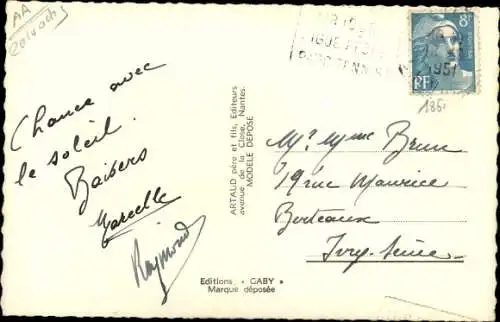 AA
Chance avec
le soleil.
Baisers
Marcelle
Raymond
ARTAUD père et fils, Editeurs
avenue de la Close, Nantes.
MODÈLE DÉPOSÉ
Editions "GABY"
Marque déposée
8F
RF
1951
Mr Mme Brun
19 rue Maurice
Berteaux
Ivry-Seine